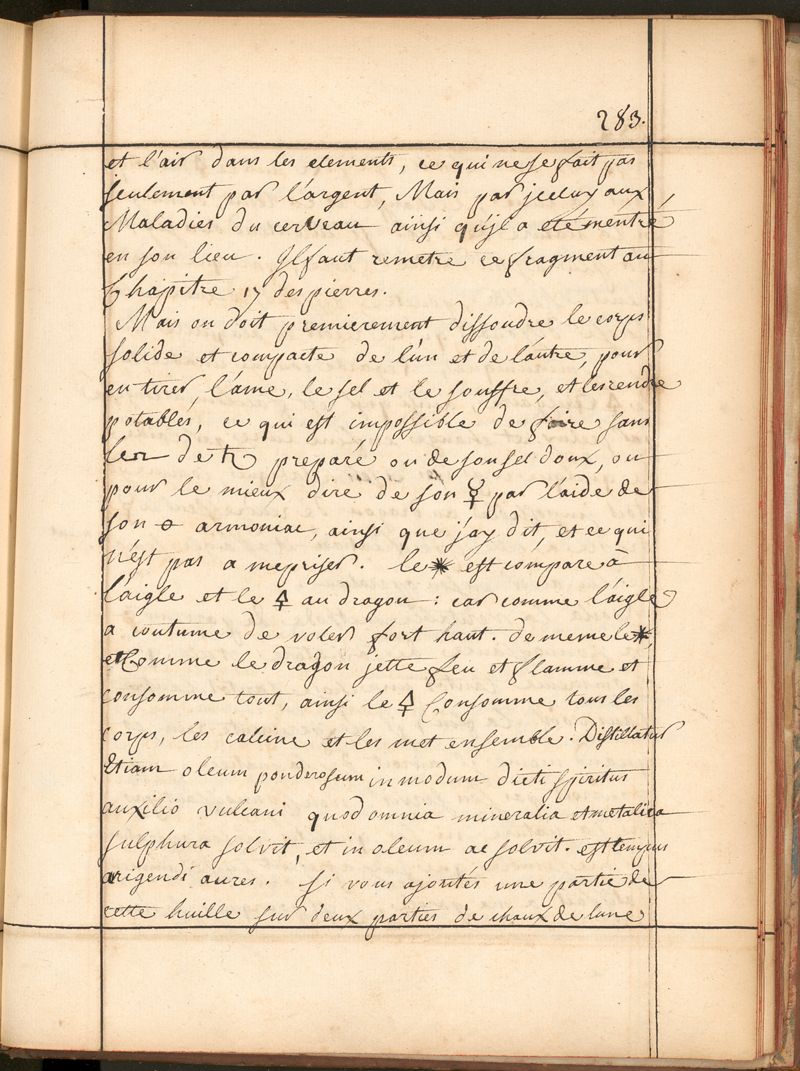 283.
et l'air dans les elements, ce qui ne se fait pas
seulement par l'argent, Mais par jceluy aux
Maladies du cerveau ainsi qu'jl a eté mentré
en son lieu. Jl faut remetre ce fragment au
Chapitre 17 des pierres.
Mais on doit premierement dissoudre le corps
solide et compacte de l'un et de l'autre, pour
en tirer l'ame, le sel et le souffre, et les rendre
potables, ce qui est impossible de faire sans
le de ♄ preparé ou de son sel doux, ou
pour le mieux dire de son ☿ par l'aide de
son armoniac, ainsi que j'ay dit, et ce qui
n'est pas a mepriser. le ✴ est compare à
l'aigle et le 🜍 au dragon : car comme l'aigle
a coutume de voler fort haut. de meme le ✴,
et Comme le dragon jette feu et flamme et
consomme tout, ainsi le 🜍 Consomme tous les
corps, les calcine et les met ensemble. Distillatur
Etiam oleum ponderosum in modum dicti spiritus
auxilio vulcani quod omnia mineralia et metalica
sulphura solvit, et in oleum ac solvit. est tempus
arigendi aures. Si vous ajoutés une partie de
cette huille sur deux parties de chaux de lune